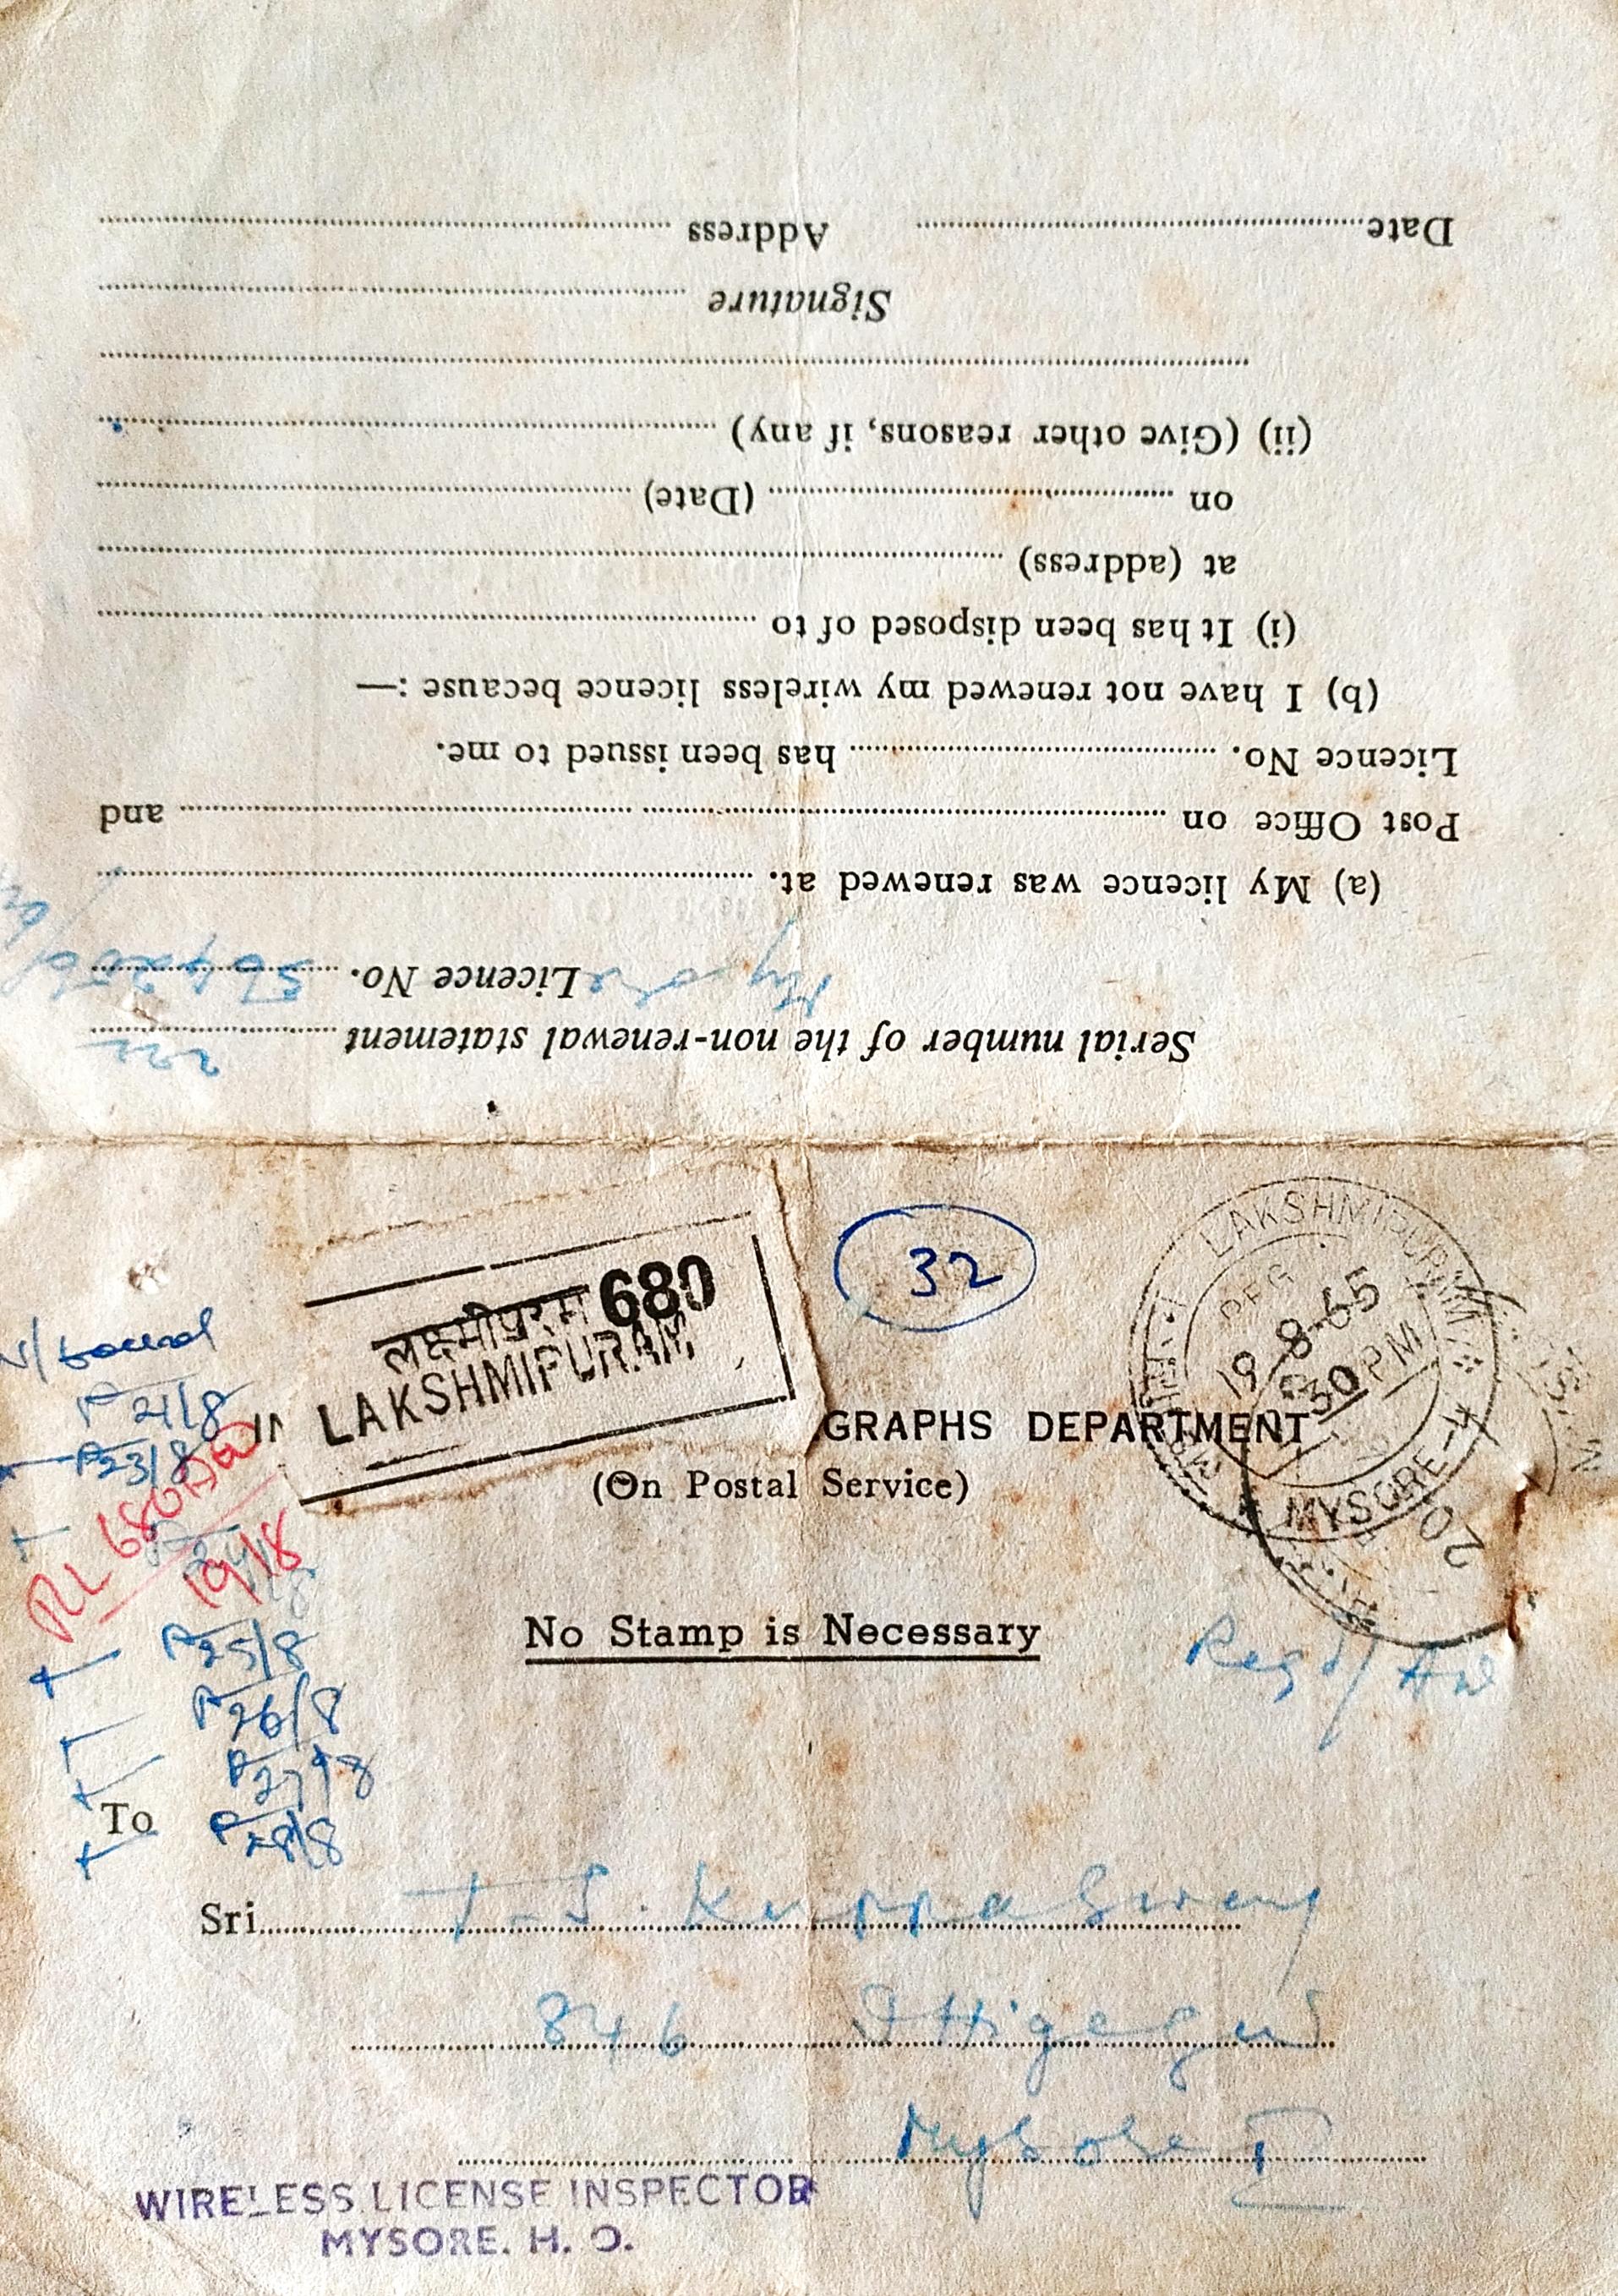 Serial number of the non-renewal statement 222
Mysore Licence No.
(a) My licence was renewed at.
Post Office on and
Licence No. has been issued to me.
(b) I have not renewed my wireless licence because :—
(i) It has been disposed of to
at (address)
on (Date)
(ii) (Give other reasons, if any)
Signature
Date Address
लक्ष्मीपुरम 680
LAKSHMIPURAM
32
LAKSHMIPURAM
19-8-65
30 PM
MYSORE-4
20
GRAPHS DEPARTMENT
(On Postal Service)
No Stamp is Necessary
Regd/AD
21/8
23/8
RL 680
19/8
25/8
26/8
27/8
28/8
To
Sri T.S. Kuppaswamy
846 Ittigegud
Mysore
WIRELESS LICENSE INSPECTOR
MYSORE. H. O.